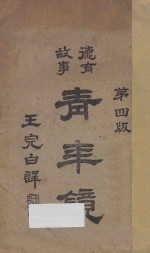 第四版
德育
故事
青年鏡
王完白譯